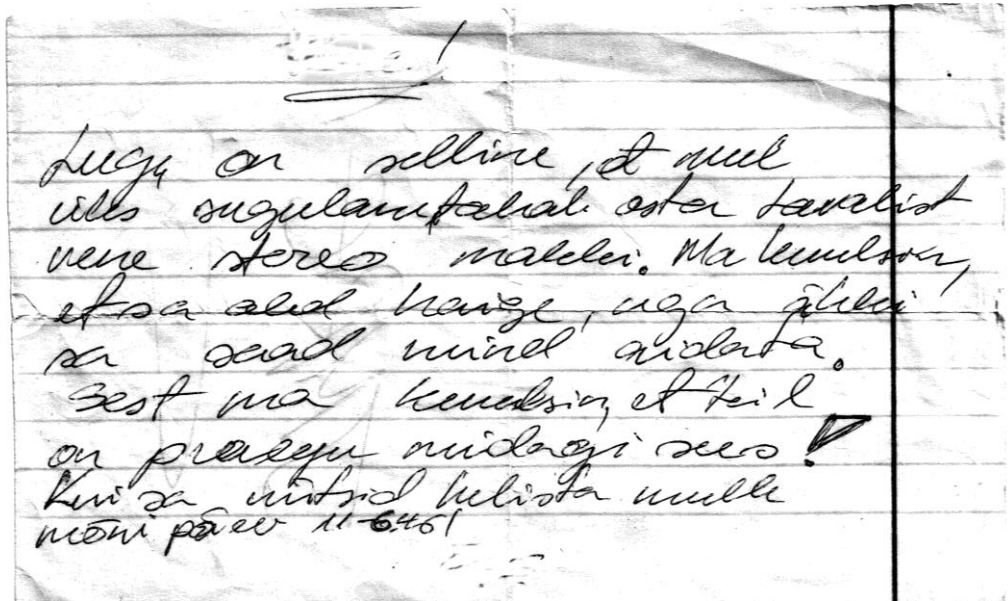 Lugu on selline, et mul
üks sugulane tahab osta tavalist
vene stereo makki. Ma kuulsin,
et sa oled haige, aga äkki
sa saad mind aidata.
Sest ma kuulsin, et teil
on praegu midagi sees!
Kui sa viitsid helista mulle
mõni päev